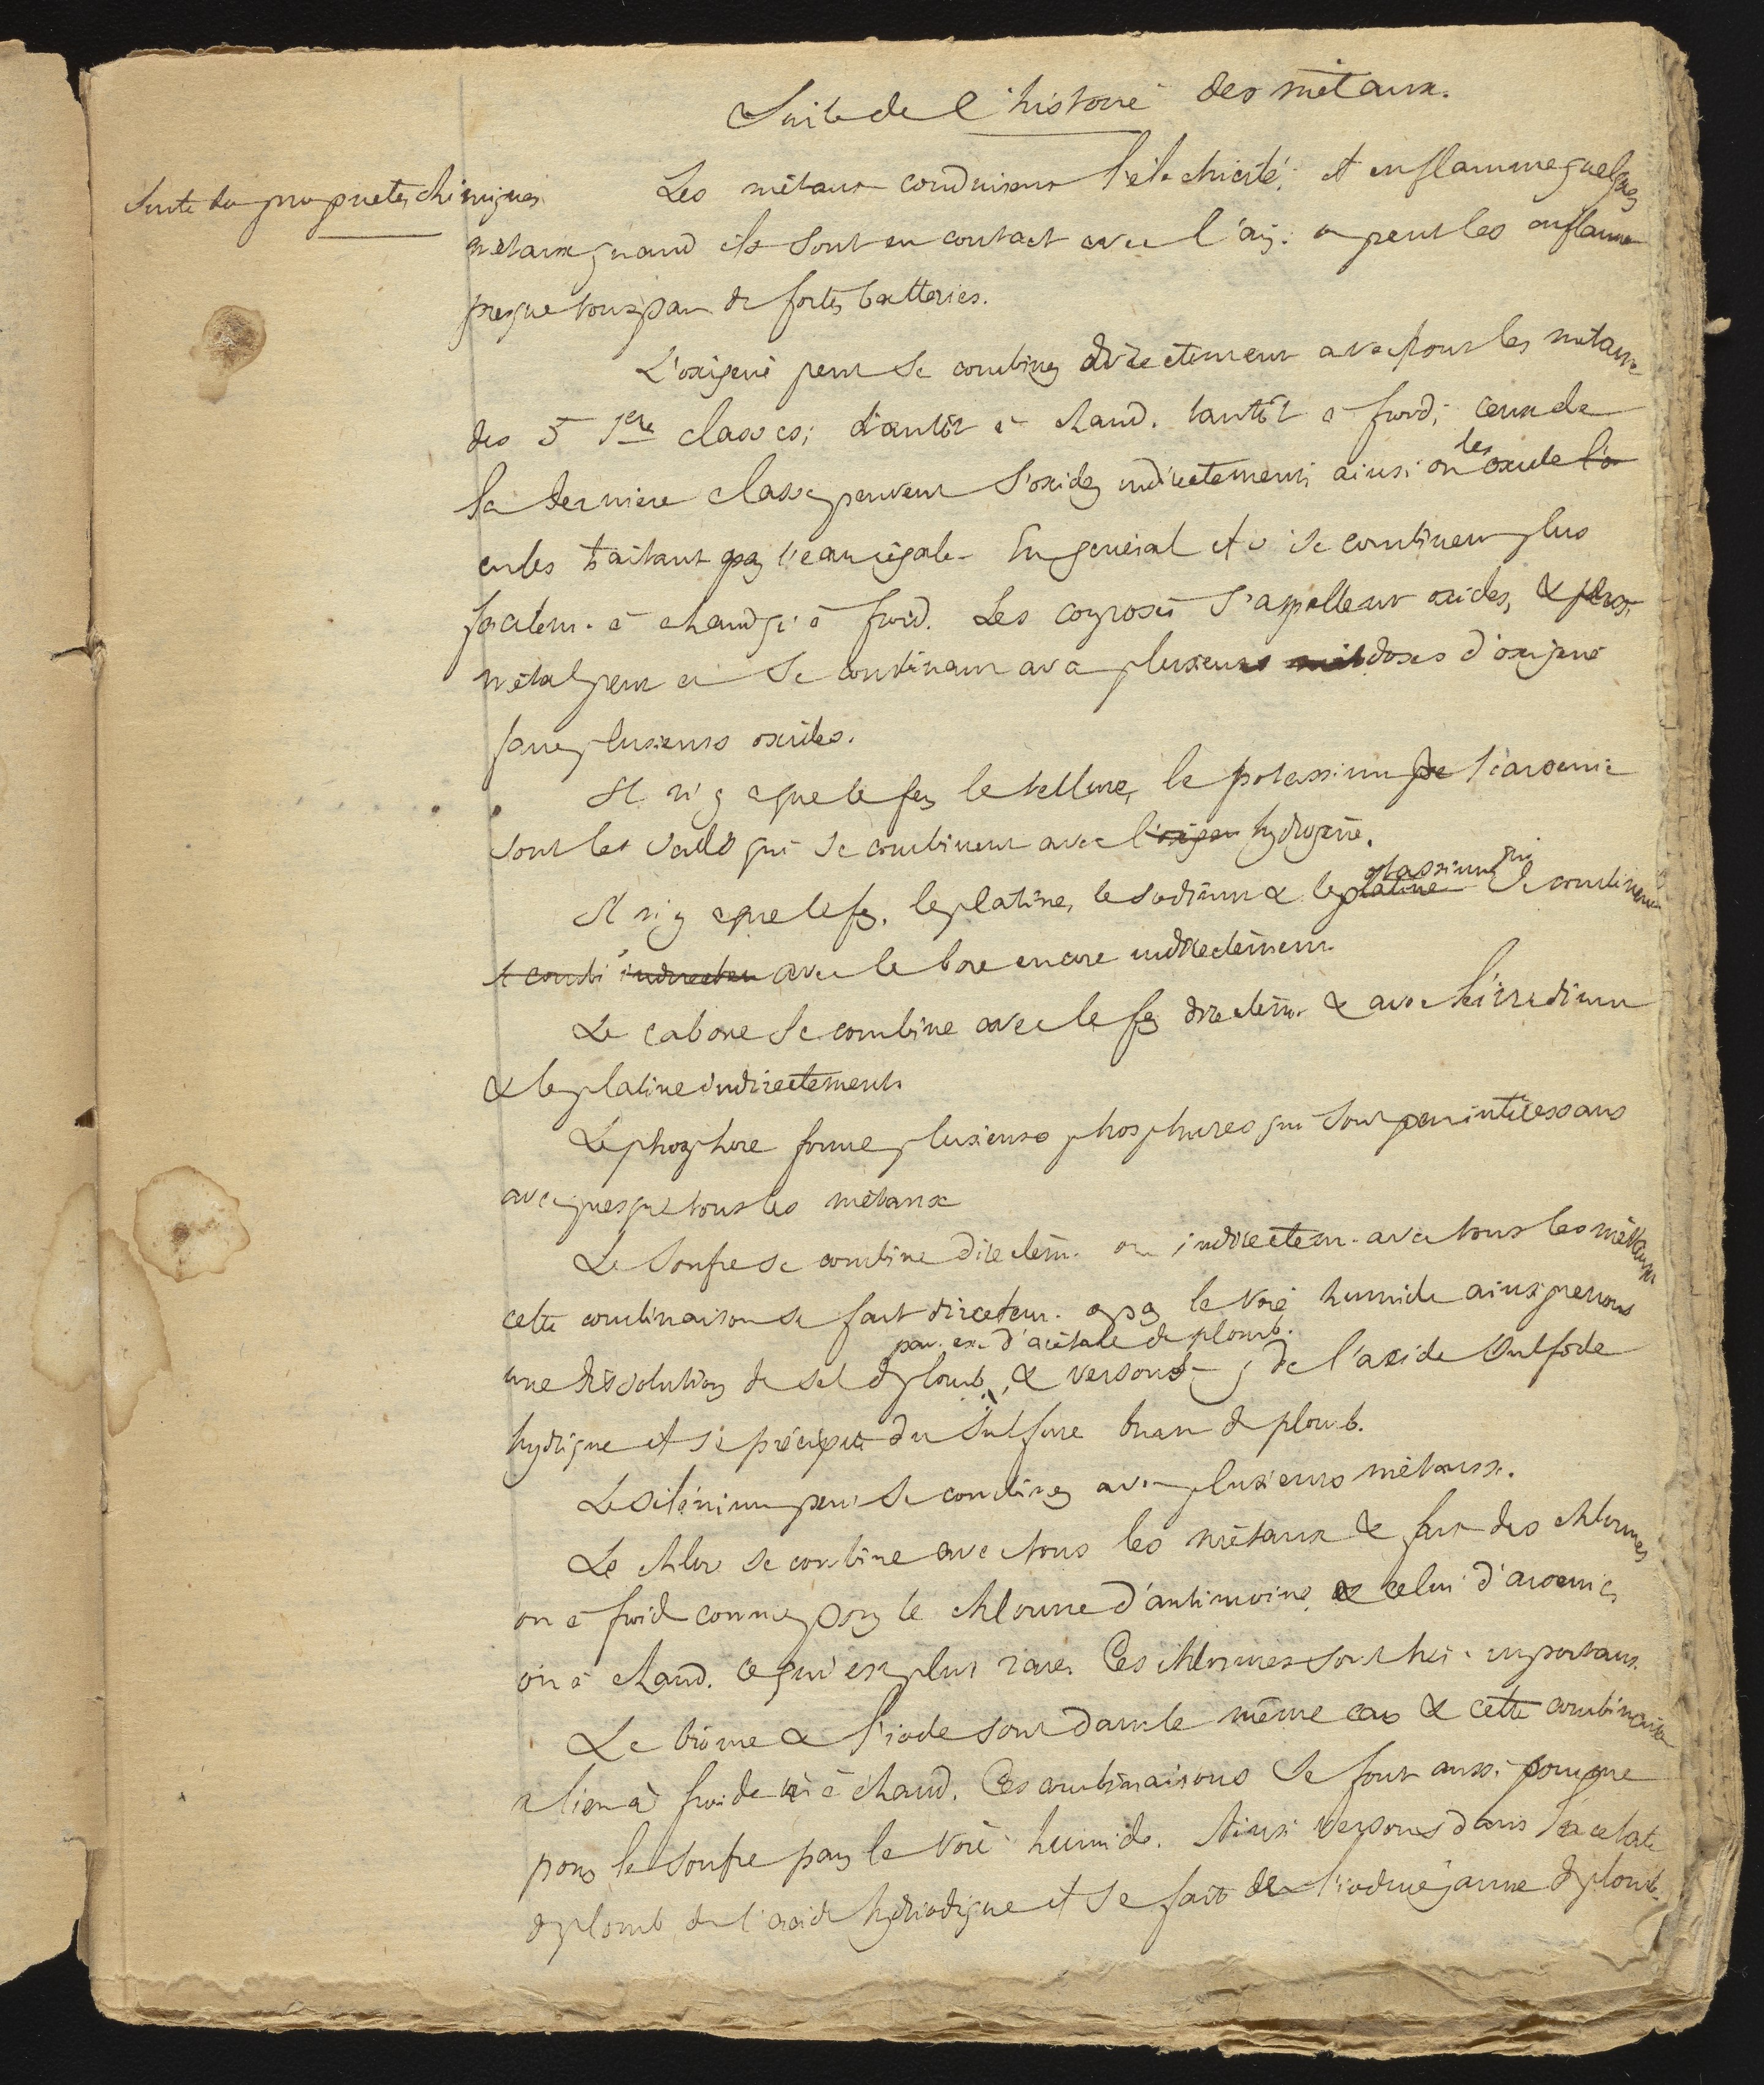 Suite de l'histoire des métaux.
Suite des propriétés chimiques
Les métaux conduisent l'électricité; et enflamme quelques
métaux quand ils sont en contact avec l'air. on peut les enflammer
presque tous par de fortes batteries.
L'oxigène peut se combiner directement avec tous les métaux
des 5 1ere classes; tantôt à chaud. tantôt à froid; ceux de
la dernière classe peuvent s'oxider indirectement, ainsi on les oxide l'o
en les traitant par l'eau régale. En général et se combinent plus
facilem. à chaud qu'à froid. Les composés s'appellent oxides, &
métal peut en se combinant avec plusieurs doses d'oxigène
faire plusieurs oxides.
Il n'y a que le fer, le tellure, le potassium l'arsenic
sont les seuls qui se combinent avec l'oxigen hydrogène.
Il n'y a que le fer, le platine, le sodium & le platine potassium qui se combinent
se combi indirectem avec le bore encore indirectement.
Le cabone se combine avec le fer directem. & avec l'irredium
& le platine indirectement.
Le phosphore forme plusieurs phosphures qui sont peu intéressans
avec presque tous les métaux
Le soufre se combine directem. ou indirectem. avec tous les métaux
cette combinaison se fait directem. par la voie humide ainsi prenons
une dissolution de sel de plomb, par. ex. d'acétate de plomb. & versons-y de l'acide sulfide
hydrique et se précipite du sulfure brun de plomb.
Le sélénium peut se combiner avec plusieurs métaux.
Le chlor se combine avec tous les métaux & fait des chlorures
ou à froid comme pour le chlorure d'antimoine & celui d'arsenic,
ou à chaud. ce qui est plus rare. Ces chlorures sont très importans.
Le brôme & l'iode sont dans le même cas & cette combinaison
a lieu à froid & à chaud. Ces combinaisons se font aussi
pour le soufre par la voie humide. Ainsi versons dans l'acétate
de plomb de l'acide hydriodique et se fait de l'iodure jaune de plomb.